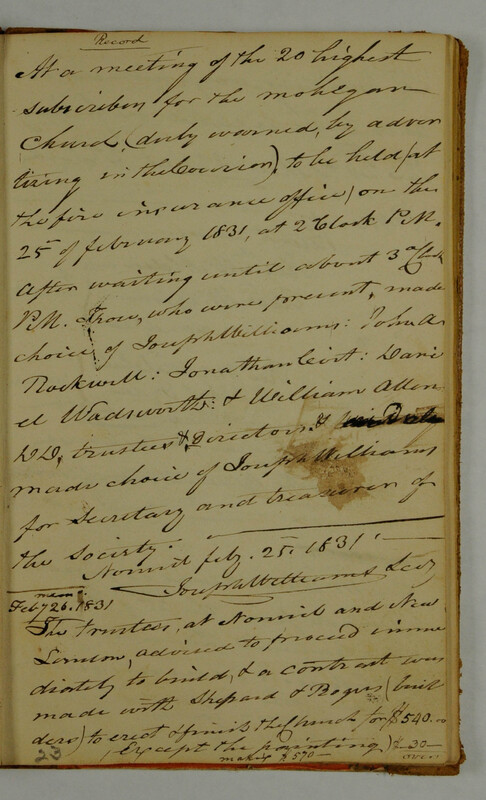 Record
At a meeting of the 20 highest
subscribers for the mohegan
Church, (duly warned, by adver
tising in the Courier) to be held (at
the fire insurance office) on the
25 of february 1831, at 2 Clock P.M.
After waiting until about 3 o Clock
P.M. who were present, made
choice of Joseph Williams: John A
Rockwell: Jonathan : Dani
el Wadsworth: & William Allen
DD, trustees & Directors, &
made choice of Joseph Williams
for Secretary and treasurer of
the society.
Norwich feby. 25. 1831
Joseph Williams Secy
mem:
Feby 26. 1831
The trustees, at Norwich and New
London, advised to proceed imme
diately to build, & a contract was
made with Shepard & (buil
ders) to erect & finish the Church for $540.00
(Except the painting) $ 30
making $570
23